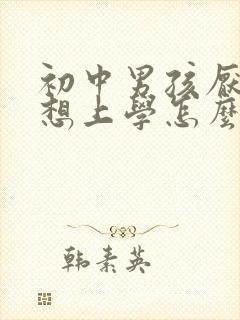 初中男孩厭
想上學怎麼
韩素英